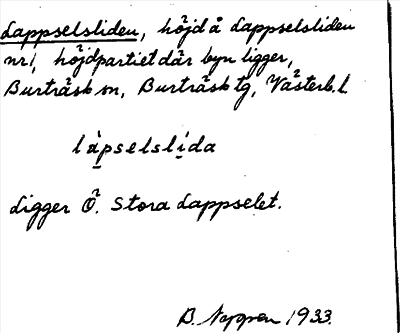 Lappselsliden, höjd å Lappselsliden
nr 1, höjdpartiet där byn ligger,
Burträsk sn, Burträsk tg, Västerb. l.
lápselslịda
Ligger Ö. Stora Lappselet.
B. 1933.